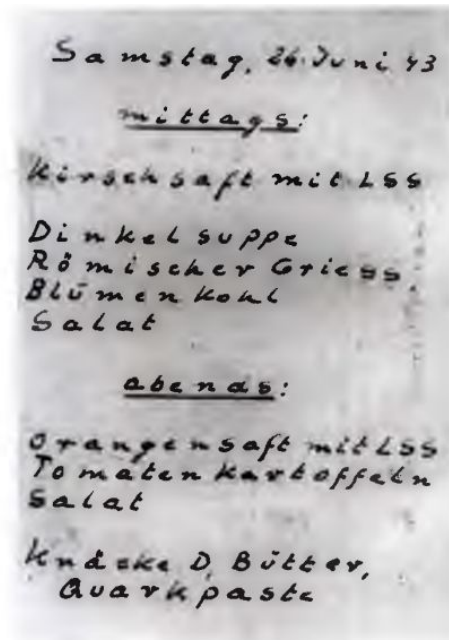 Samstag, 26. Juni 43
mittags:
Kirschsaft mit LSS
Dinkelsuppe
Römischer Griess,
Blümenkohl
Salat
abends:
Orangensaft mit LSS
Tomatenkartoffeln
Salat
Knäcke D, Bütter,
Quarkpaste